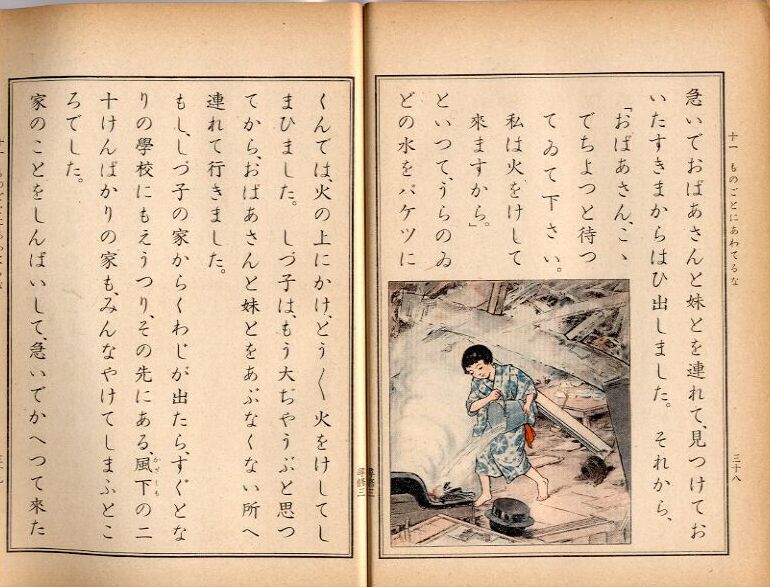 十一 ものごとにあわてるな
三十八
急いでおばあさんと妹とを連れて、見つけてお
いたすきまからはひ出しました。それから、
「おばあさん、こゝ
でちよつと待つ
てゐて下さい。
私は火をけして
來ますから。」
といつて、うらのゐ
どの水をバケツに
尋修三
くんでは、火の上にかけ、とう〳〵火をけしてし
まひました。しづ子は、もう大ぢやうぶと思つ
てから、おばあさんと妹とをあぶなくない所へ
連れて行きました。
もし、しづ子の家からくわじが出たら、すぐとな
りの學校にもえうつり、その先にある、風下の二
かざしも
十けんばかりの家も、みんなやけてしまふとこ
ろでした。
家のことをしんぱいして、急いでかへつて來た
尋修三